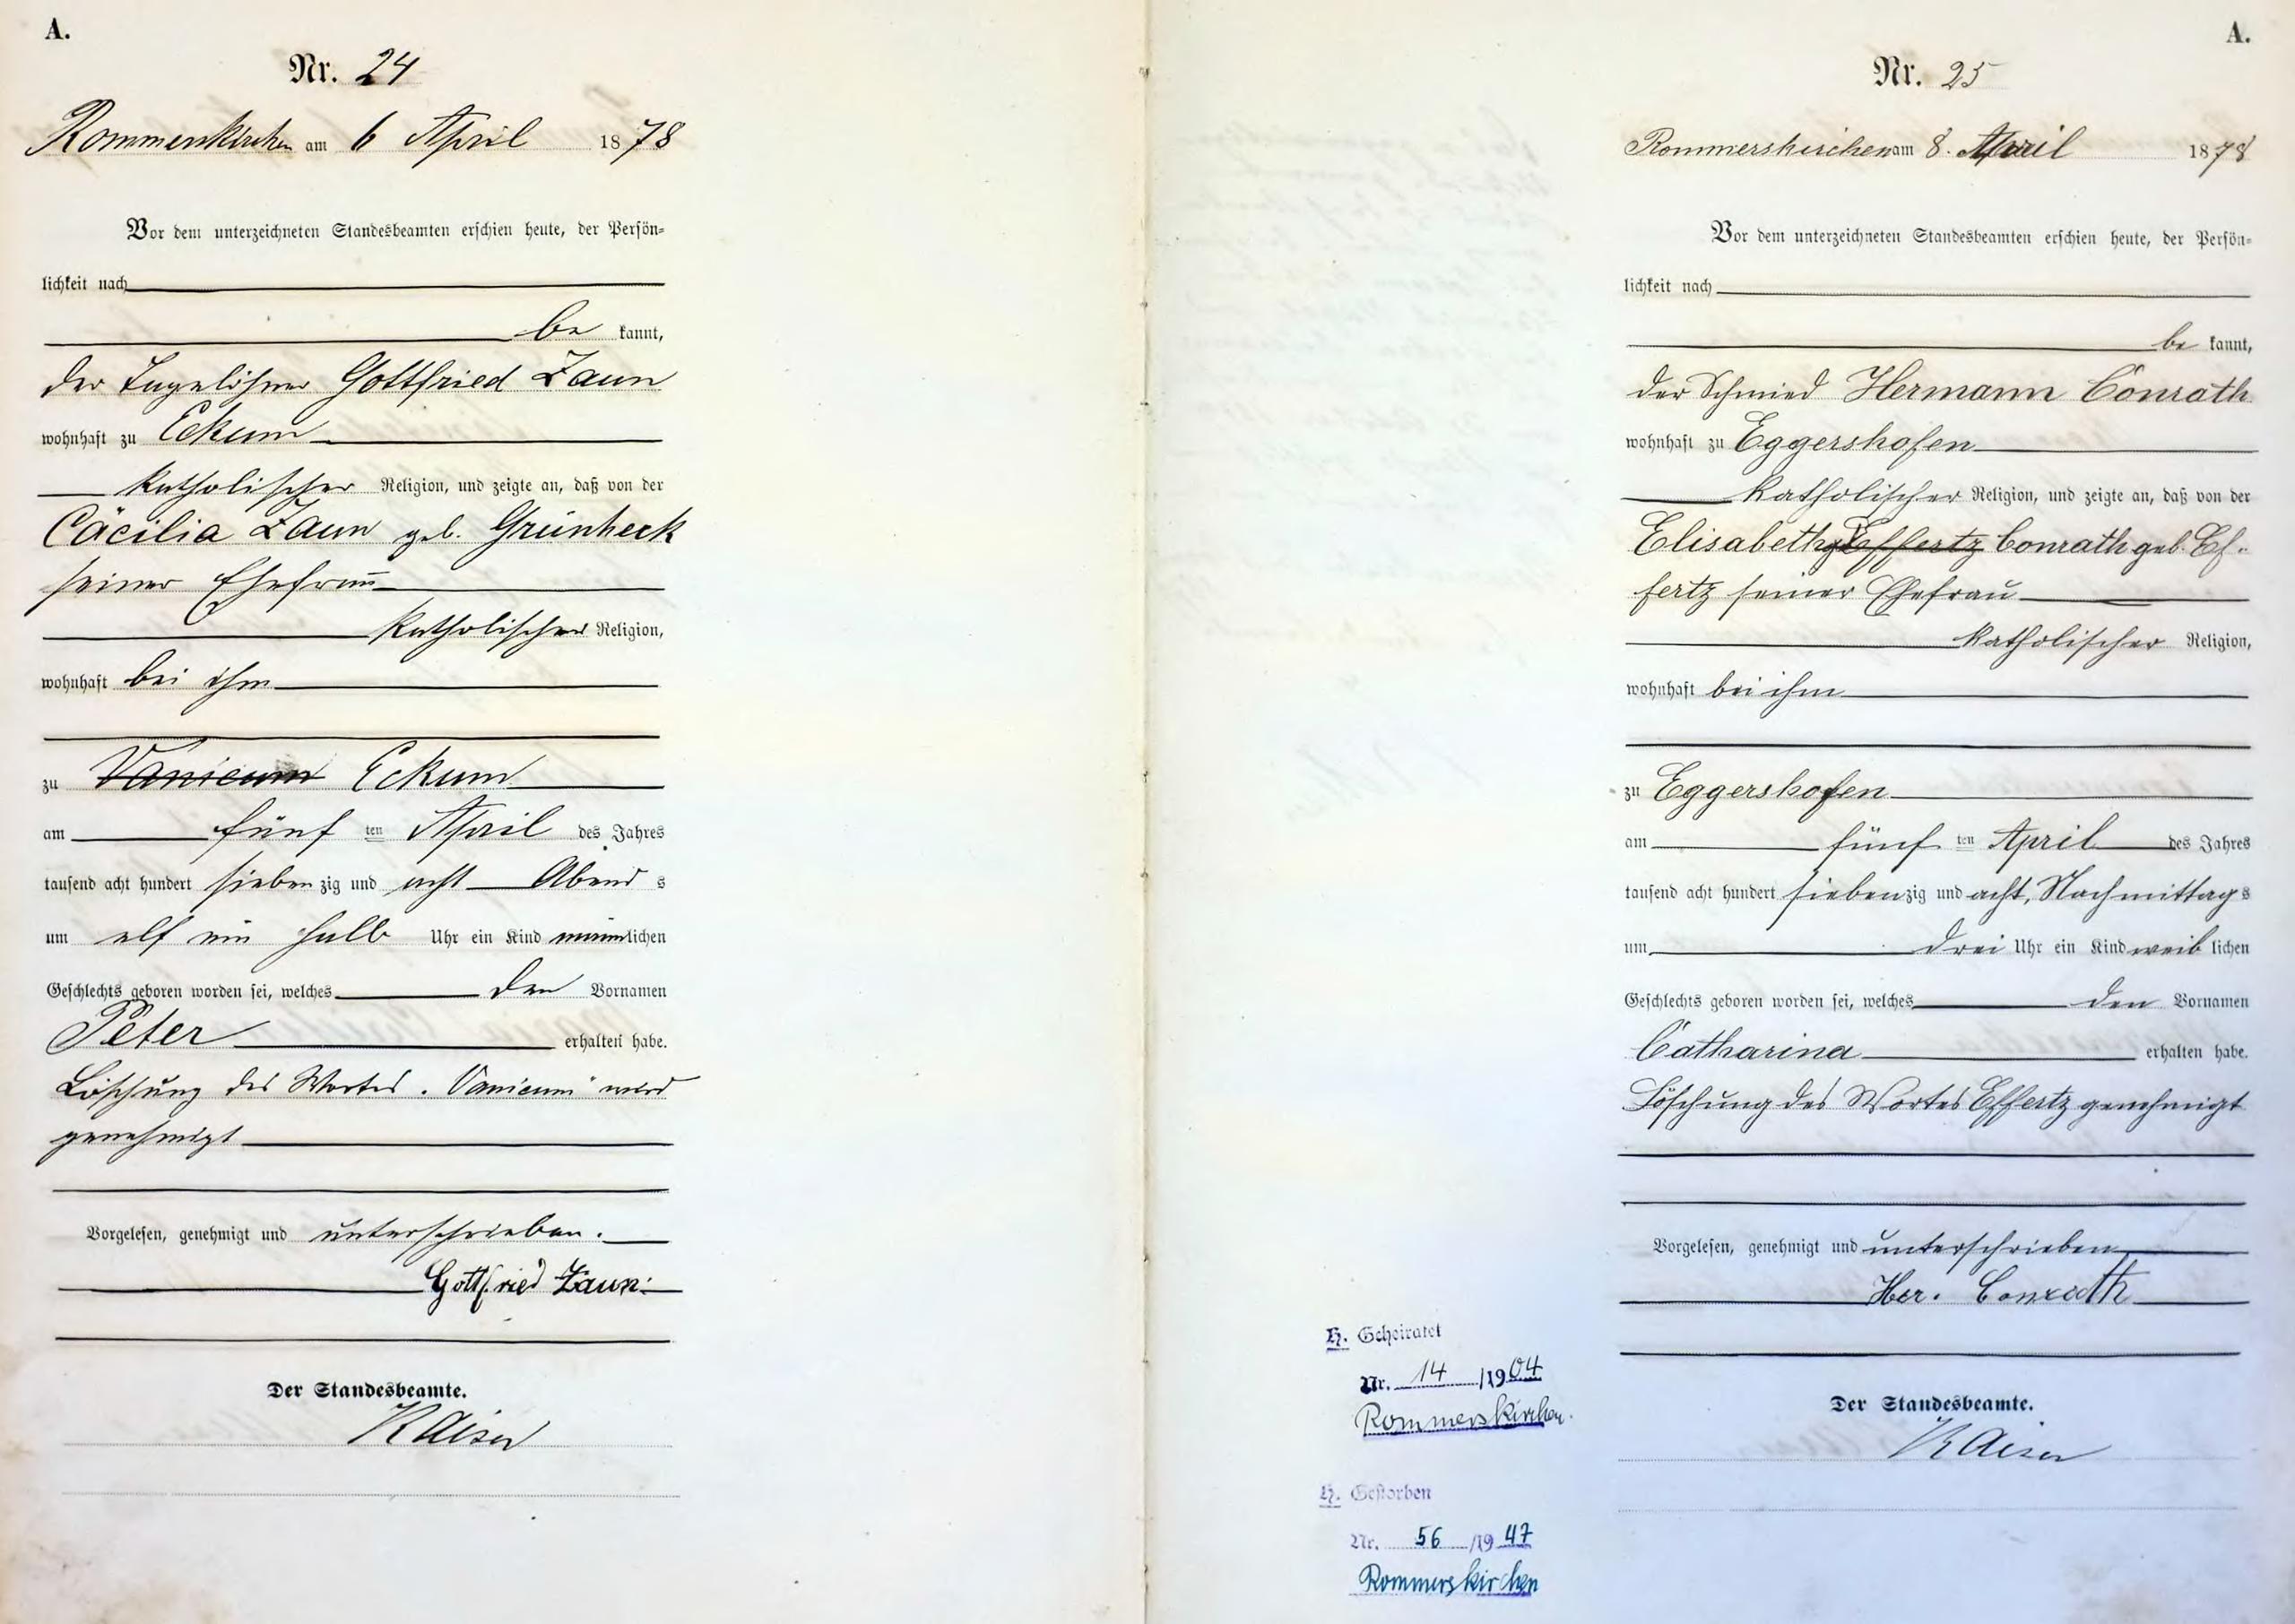 A.
Nr. 24
Rommerskirchen am 6 April 1878
Vor dem unterzeichneten Standesbeamten erschien heute, der Persön-
lichkeit nach
be kannt,
der Tagelöhner Gottfried Zaun
wohnhaft zu Eckum
katholischer Religion, und zeigte an, daß von der
Cäcilia Zaun geb. Grünheck
seiner Ehefrau
katholischer Religion,
wohnhaft bei ihm
zu Vanicum Eckum
am fünf ten April des Jahres
tausend acht hundert sieben zig und acht Abend s
um elf ein halb Uhr ein Kind männlichen
Geschlechts geboren worden sei, welches den Vornamen
Peter erhalten habe.
Löschung des Wortes „Vanicum" wird
genehmigt
Vorgelesen, genehmigt und unterschrieben.
Gottfried Zaun
Der Standesbeamte.
Kaiser
A.
Nr. 25
Rommerskirchen am 8. April 1878
Vor dem unterzeichneten Standesbeamten erschien heute, der Persön-
lichkeit nach
be kannt,
der Schmied Hermann Conrath
wohnhaft zu Eggershofen
katholischer Religion, und zeigte an, daß von der
Elisabeth Effertz Conrath geb. Ef-
fertz seiner Ehefrau
katholischer Religion,
wohnhaft bei ihm
zu Eggershofen
am fünf ten April des Jahres
tausend acht hundert siebenzig und acht, Nachmittag s
um drei Uhr ein Kind weib lichen
Geschlechts geboren worden sei, welches den Vornamen
Catharina erhalten habe.
Löschung des Wortes Effertz genehmigt
Vorgelesen, genehmigt und unterschrieben
Her. Conrath
Der Standesbeamte.
Kaiser
H. Geheiratet
Nr. 14 /1904
Rommerskirchen.
H. Gestorben
Nr. 56 /1947
Rommerskirchen